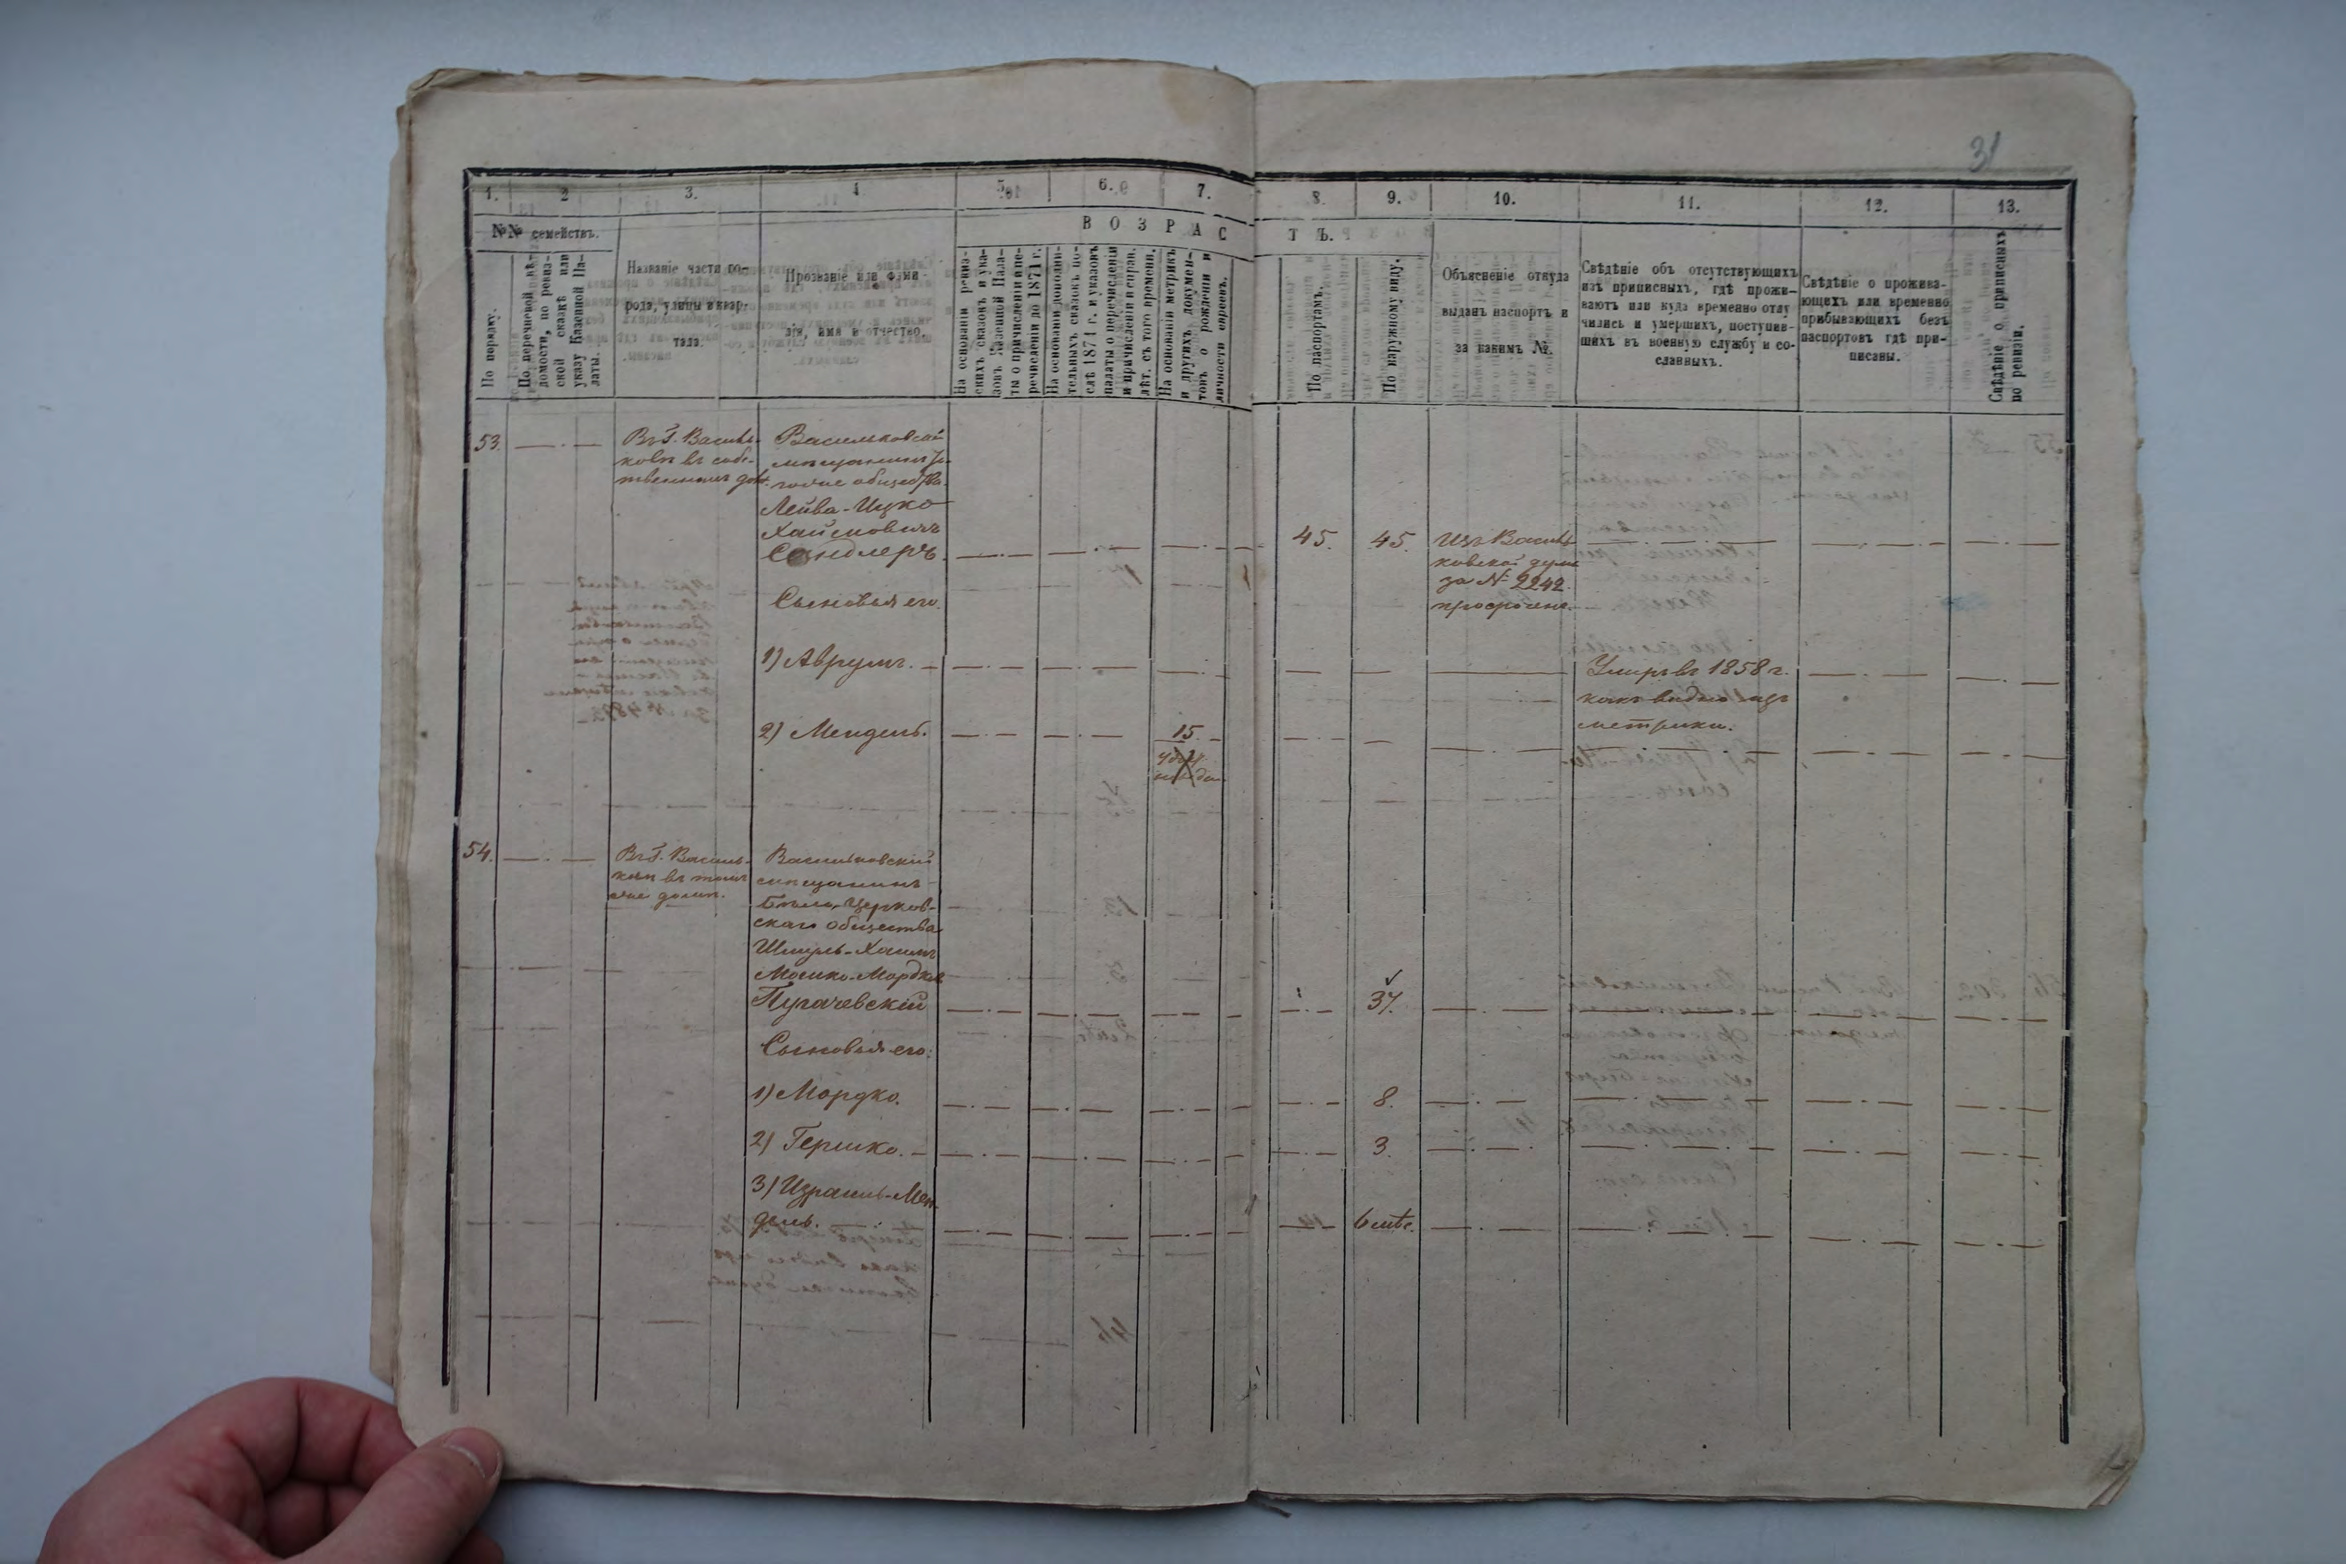 31
1. 2 3. 4 5. 6. 7. 8. 9. 10. 11. 12. 13.
№№ семействъ.
В О З Р А С Т Ъ.
По порядку.
По перечневой вѣ-
домости, по ревиз-
ской сказкѣ или
указу Казенной Па-
латы.
Названіе части го-
рода, улицы и квар-
тала.
Прозваніе или фами-
лія, имя и отчество.
На основаніи ревиз-
скихъ сказокъ и ука-
зовъ Казенной Пала-
ты о причисленіи и пе-
речисленіи до 1871 г.
На основаніи дополни-
тельныхъ сказокъ по-
слѣ 1871 г. и указовъ
палаты о перечисленіи
и причисленіи и справ.
лѣт. съ того времени.
На основаніи метрикъ
и другихъ докумен-
товъ о рожденіи и
личности евреевъ.
По паспортамъ.
По наружному виду.
Объясненіе откуда
выданъ паспортъ и
за какимъ №.
Свѣдѣніе объ отсутствующихъ
изъ приписныхъ, гдѣ прожи-
ваютъ или куда временно отлу
чились и умершихъ, поступив-
шихъ въ военную службу и со-
сланныхъ.
Свѣдѣніе о прожива-
ющихъ или временно
прибывающихъ безъ
паспортовъ гдѣ при-
писаны.
Свѣдѣніе о приписныхъ
по ревизіи.
53.
Въ Г. Василь-
ковѣ въ собс-
твенномъ дом.
Васильковскій
мѣщанинъ
Лейба-Ицко
Хаимовичъ
Сандлеръ.
45. 45.
Изъ Василь-
ковской думы
за № 2242.
просрочен.
Сыновья его.
1) Аврумъ.
Умеръ въ 1858 г.
какъ видно изъ
метрики.
2) Мендель.
15.
54.
Въ Г. Василь-
ковѣ въ томъ
же домѣ.
Васильковскій
мѣщанинъ
Бѣло-Церков-
скаго общества
Шмуль-Хаимъ
Мошко-Мордков
Пугачевскій
37.
Сыновья его:
1) Мордко.
8.
2) Гершко.
3.
3) Израиль-Мен-
дель.
6 мѣс.